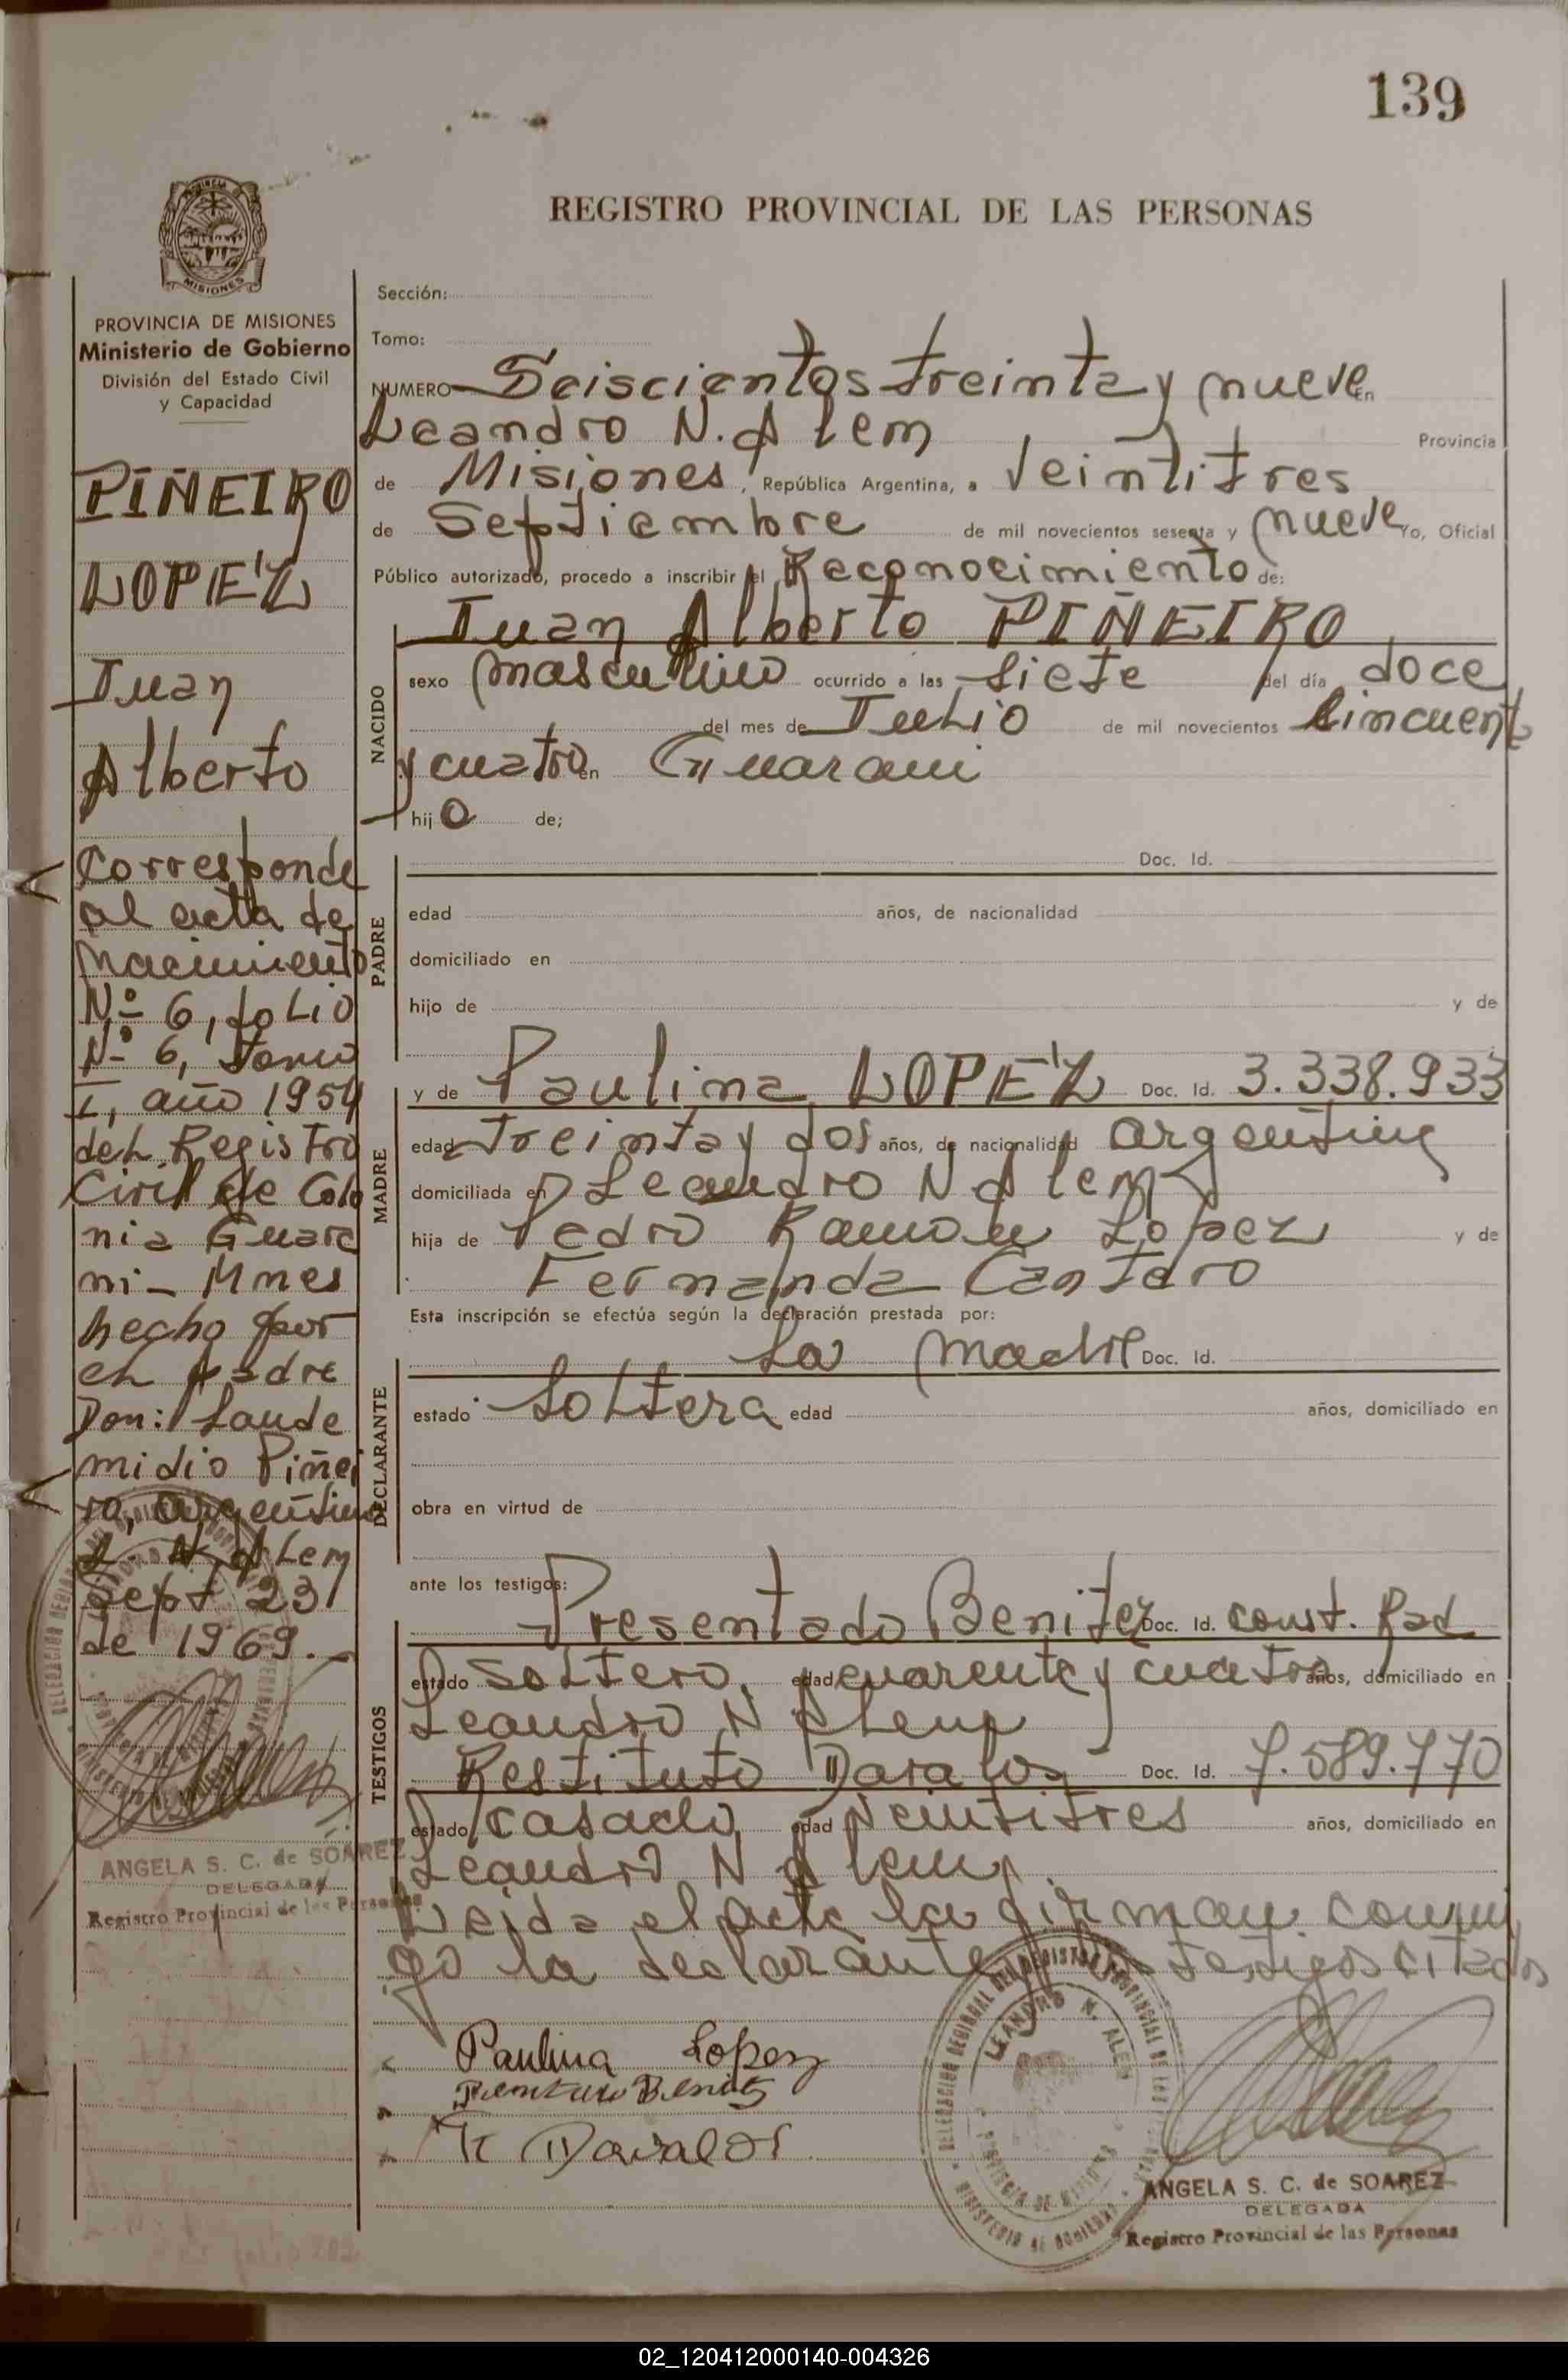 139
REGISTRO PROVINCIAL DE LAS PERSONAS
MISIONES
PROVINCIA DE MISIONES
Ministerio de Gobierno
División del Estado Civil
y Capacidad
PIÑEIRO
LOPEZ
Juan
Alberto
Corresponde
al acta de
nacimiento
Nº 6, folio
Nº 6, tomo
I, año 1954
del Registro
Civil de Colo
nia Guara
ni - Mnes
hecho por
el padre
Don: Laude
midio Piñei
ro, argentino
L. N. Alem
Sept 23
de 1969.-
ANGELA S. C. de SOAREZ
DELEGADA
Registro Provincial de las Personas
Sección:
Tomo:
NUMERO Seiscientos treinta y nueve En
Leandro N. Alem Provincia
de Misiones, República Argentina, a Veintitres
de Septiembre de mil novecientos sesenta y nueve Yo, Oficial
Público autorizado, procedo a inscribir el Reconocimiento de:
Juan Alberto PIÑEIRO
NACIDO
sexo masculino ocurrido a las siete del día doce
del mes de Julio de mil novecientos Cincuenta
y cuatro en Guarani
hijo de;
PADRE
Doc. Id.
edad años, de nacionalidad
domiciliado en
hijo de y de
MADRE
y de Paulina LOPEZ Doc. Id. 3.338.933
edad treinta y dos años, de nacionalidad argentina
domiciliada en Leandro N Alem
hija de Pedro Ramon Lopez y de
Fernanda Cantero
Esta inscripción se efectúa según la declaración prestada por:
DECLARANTE
La madre Doc. Id.
estado Soltera edad años, domiciliado en
obra en virtud de
ante los testigos:
TESTIGOS
Presentado Benitez Doc. Id. const. Rad
estado soltero, edad cuarenta y cuatro años, domiciliado en
Leandro N Alem
Restituto Davalos Doc. Id. 7.589.770
estado casado edad Veintitres años, domiciliado en
Leandro N Alem.
Leida el acta la firman conmi
go la declarante y los testigos citados
Paulina Lopez
Benitez
R Davalos
LEANDRO N. ALEM
ANGELA S. C. de SOAREZ
DELEGADA
Registro Provincial de las Personas
02_120412000140-004326